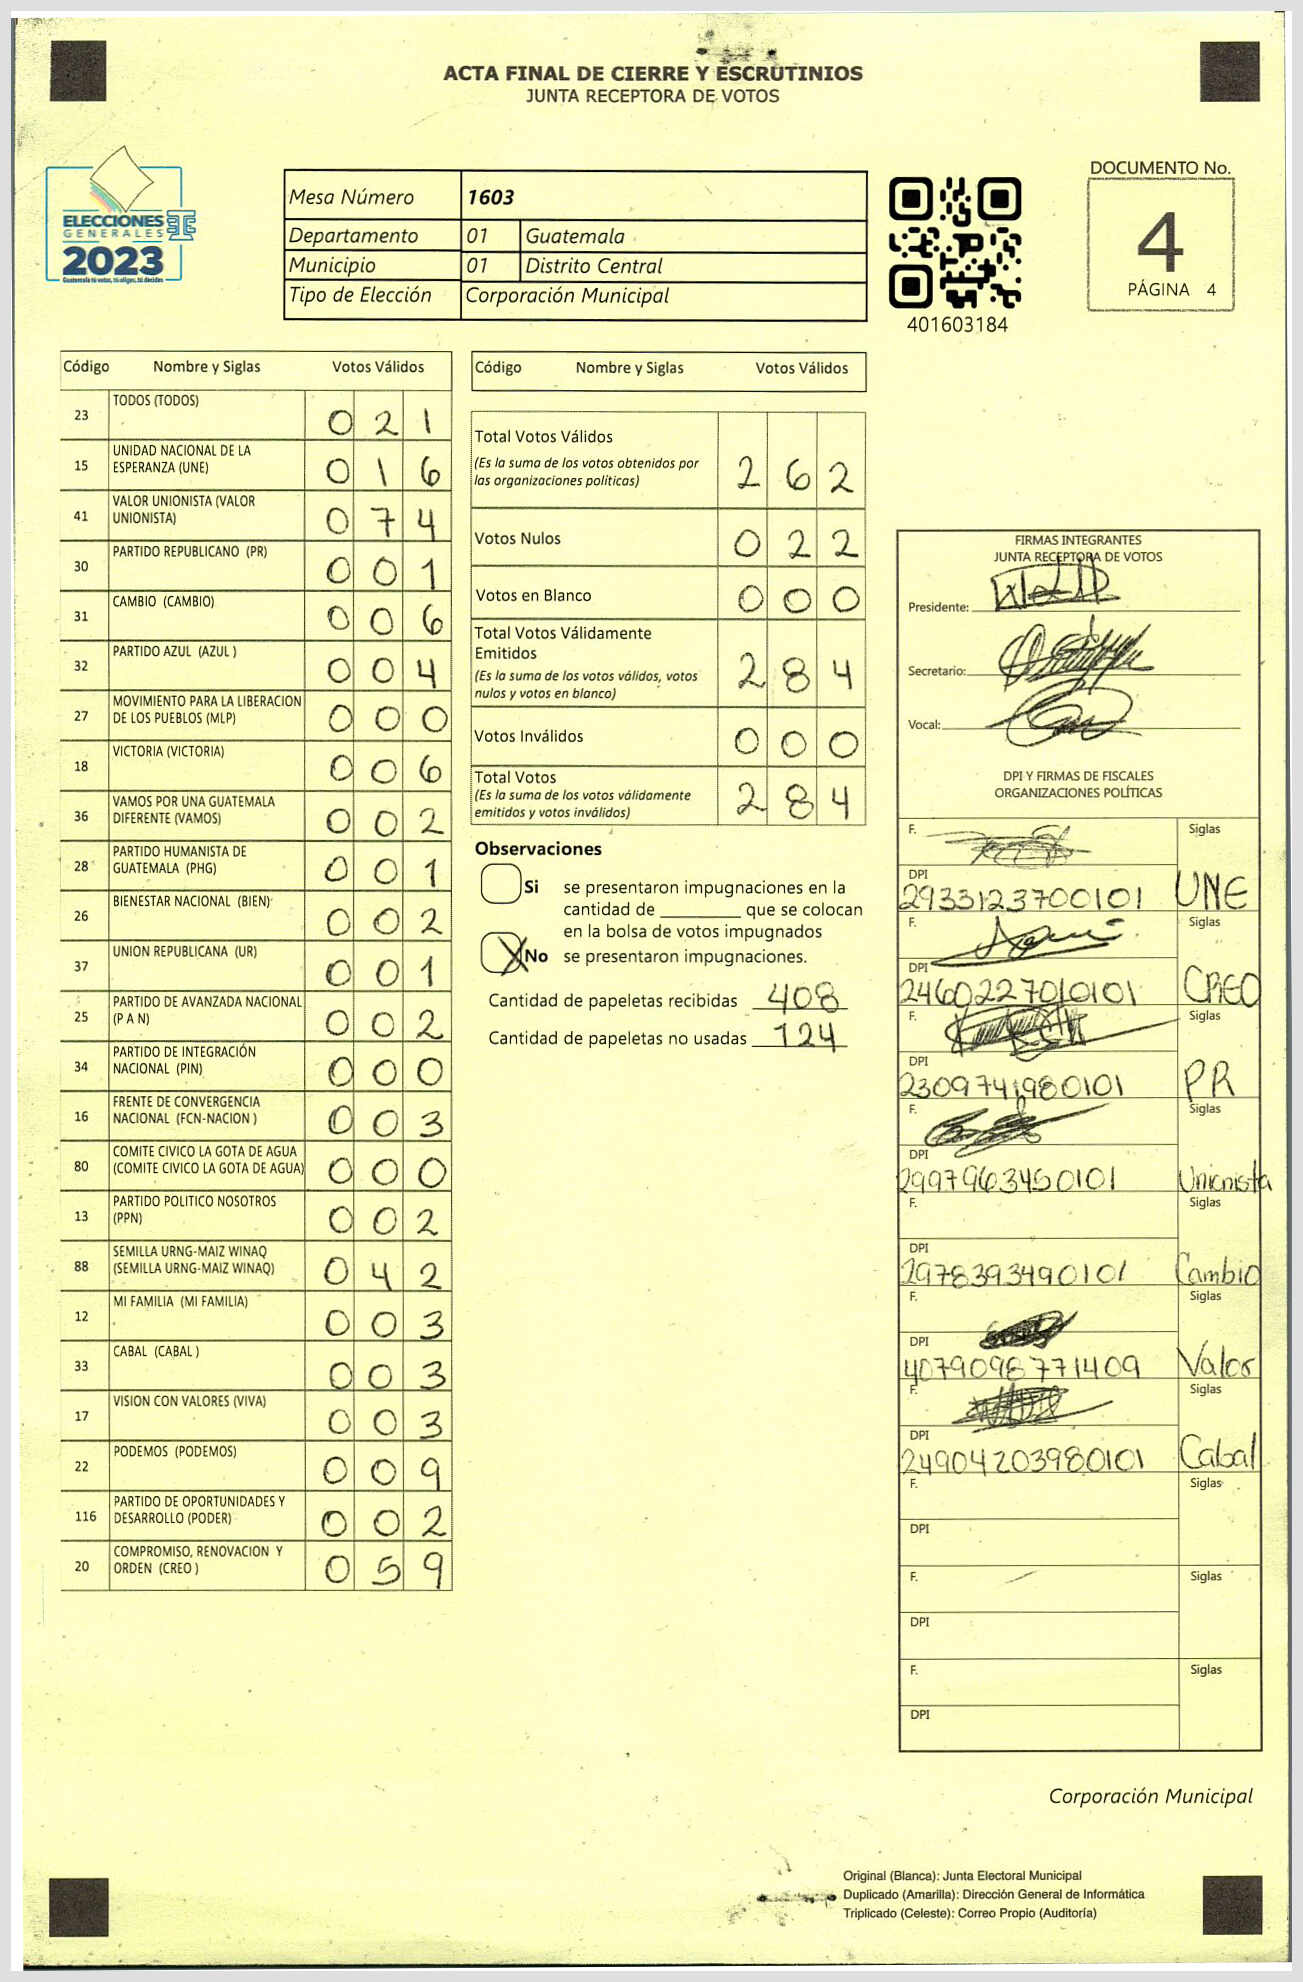 ACTA FINAL DE CIERRE Y ESCRUTINIOS
JUNTA RECEPTORA DE VOTOS
ELECCIONES
GENERALES
2023
Guatemala tú votas, tú eliges, tú decides
Mesa Número 1603
Departamento 01 Guatemala
Municipio 01 Distrito Central
Tipo de Elección Corporación Municipal
401603184
DOCUMENTO No.
4
PÁGINA 4
Código Nombre y Siglas Votos Válidos
23 TODOS (TODOS) 0 2 1
15 UNIDAD NACIONAL DE LA
ESPERANZA (UNE) 0 1 6
41 VALOR UNIONISTA (VALOR
UNIONISTA) 0 7 4
30 PARTIDO REPUBLICANO (PR) 0 0 1
31 CAMBIO (CAMBIO) 0 0 6
32 PARTIDO AZUL (AZUL ) 0 0 4
27 MOVIMIENTO PARA LA LIBERACION
DE LOS PUEBLOS (MLP) 0 0 0
18 VICTORIA (VICTORIA) 0 0 6
36 VAMOS POR UNA GUATEMALA
DIFERENTE (VAMOS) 0 0 2
28 PARTIDO HUMANISTA DE
GUATEMALA (PHG) 0 0 1
26 BIENESTAR NACIONAL (BIEN) 0 0 2
37 UNION REPUBLICANA (UR) 0 0 1
25 PARTIDO DE AVANZADA NACIONAL
(P A N) 0 0 2
34 PARTIDO DE INTEGRACIÓN
NACIONAL (PIN) 0 0 0
16 FRENTE DE CONVERGENCIA
NACIONAL (FCN-NACION ) 0 0 3
80 COMITE CIVICO LA GOTA DE AGUA
(COMITE CIVICO LA GOTA DE AGUA) 0 0 0
13 PARTIDO POLITICO NOSOTROS
(PPN) 0 0 2
88 SEMILLA URNG-MAIZ WINAQ
(SEMILLA URNG-MAIZ WINAQ) 0 4 2
12 MI FAMILIA (MI FAMILIA) 0 0 3
33 CABAL (CABAL ) 0 0 3
17 VISION CON VALORES (VIVA) 0 0 3
22 PODEMOS (PODEMOS) 0 0 9
116 PARTIDO DE OPORTUNIDADES Y
DESARROLLO (PODER) 0 0 2
20 COMPROMISO, RENOVACION Y
ORDEN (CREO ) 0 5 9
Código Nombre y Siglas Votos Válidos
Total Votos Válidos
(Es la suma de los votos obtenidos por
las organizaciones políticas) 2 6 2
Votos Nulos 0 2 2
Votos en Blanco 0 0 0
Total Votos Válidamente
Emitidos
(Es la suma de los votos válidos, votos
nulos y votos en blanco) 2 8 4
Votos Inválidos 0 0 0
Total Votos
(Es la suma de los votos válidamente
emitidos y votos inválidos) 2 8 4
Observaciones
Si se presentaron impugnaciones en la
cantidad de ________ que se colocan
en la bolsa de votos impugnados
X No se presentaron impugnaciones.
Cantidad de papeletas recibidas 408
Cantidad de papeletas no usadas 124
FIRMAS INTEGRANTES
JUNTA RECEPTORA DE VOTOS
Presidente:
Secretario:
Vocal:
DPI Y FIRMAS DE FISCALES
ORGANIZACIONES POLÍTICAS
F. Siglas
DPI
2933123700101 UNE
F. Siglas
DPI
2460227010101 CREO
F. Siglas
DPI
2309741980101 PR
F. Siglas
DPI
2997963450101 Unionista
F. Siglas
DPI
2978393490101 Cambio
F. Siglas
DPI
4079098771409 Valor
F. Siglas
DPI
24904203980101 Cabal
F. Siglas
DPI
F. Siglas
DPI
F. Siglas
DPI
Corporación Municipal
Original (Blanca): Junta Electoral Municipal
Duplicado (Amarilla): Dirección General de Informática
Triplicado (Celeste): Correo Propio (Auditoría)